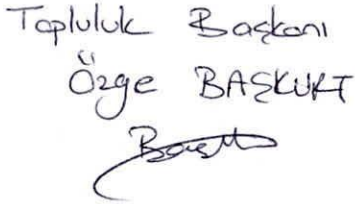 Topluluk Başkanı
Özge BAŞKURT